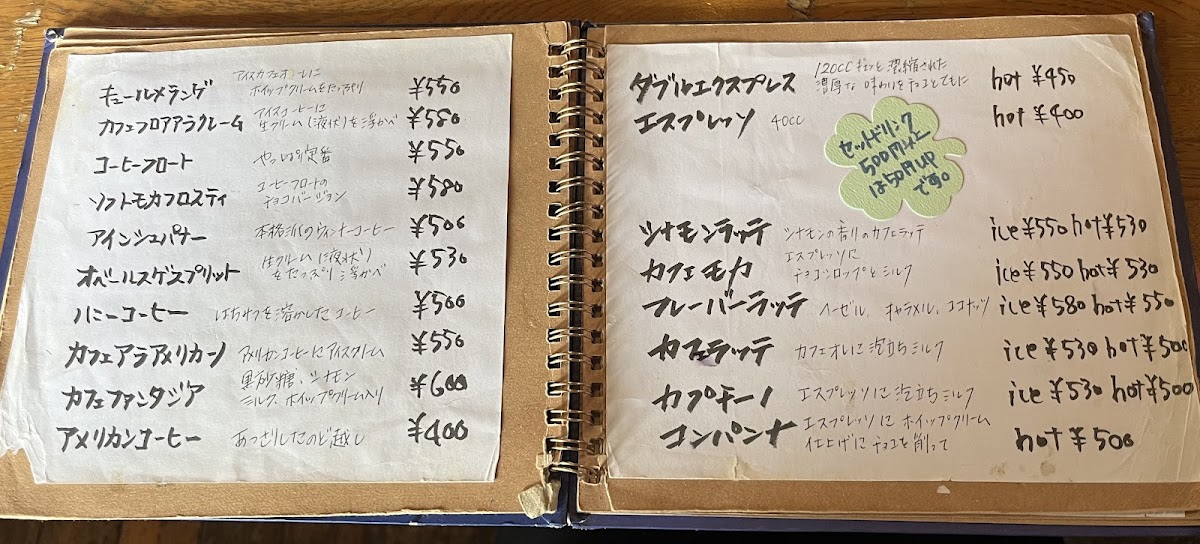 キュールメランゲ アイスカフェオーレに
ホイップクリームをたっぷり ¥550
カフェフロアアラクレーム アイスコーヒーに
生クリーム(液状)を浮かべ ¥580
コーヒーフロート やっぱり定番 ¥550
ソフトモカフロスティ コーヒーフロートの
チョコバージョン ¥580
アインシュパナー 本格派のウィンナーコーヒー ¥500
オベールスゲスプリット 生クリーム(液状)
をたっぷり浮かべ ¥530
ハニーコーヒー はちみつを溶かしたコーヒー ¥500
カフェアラアメリカーノ アメリカンコーヒーにアイスクリーム ¥550
カフェファンタジア 黒砂糖、シナモン
ミルク、ホイップクリーム入り ¥600
アメリカンコーヒー あっさりしたのど越し ¥400
ダブルエクスプレス 120CC ギュッと凝縮された
濃厚な味わりをチョコとともに hot ¥450
エスプレッソ 40CC hot ¥400
セットドリンク
500円以上
は50円UP
です。
シナモンラッテ シナモンの香りのカフェラッテ ice ¥550 hot ¥530
カフェモカ エスプレッソに
チョコシロップとミルク ice ¥550 hot ¥530
フレーバーラッテ ヘーゼル、キャラメル、ココナッツ ice ¥580 hot ¥550
カフェラッテ カフェオレに泡立ちミルク ice ¥530 hot ¥500
カプチーノ エスプレッソに泡立ちミルク ice ¥530 hot ¥500
コンパンナ エスプレッソにホイップクリーム
仕上げにチョコを削って hot ¥500